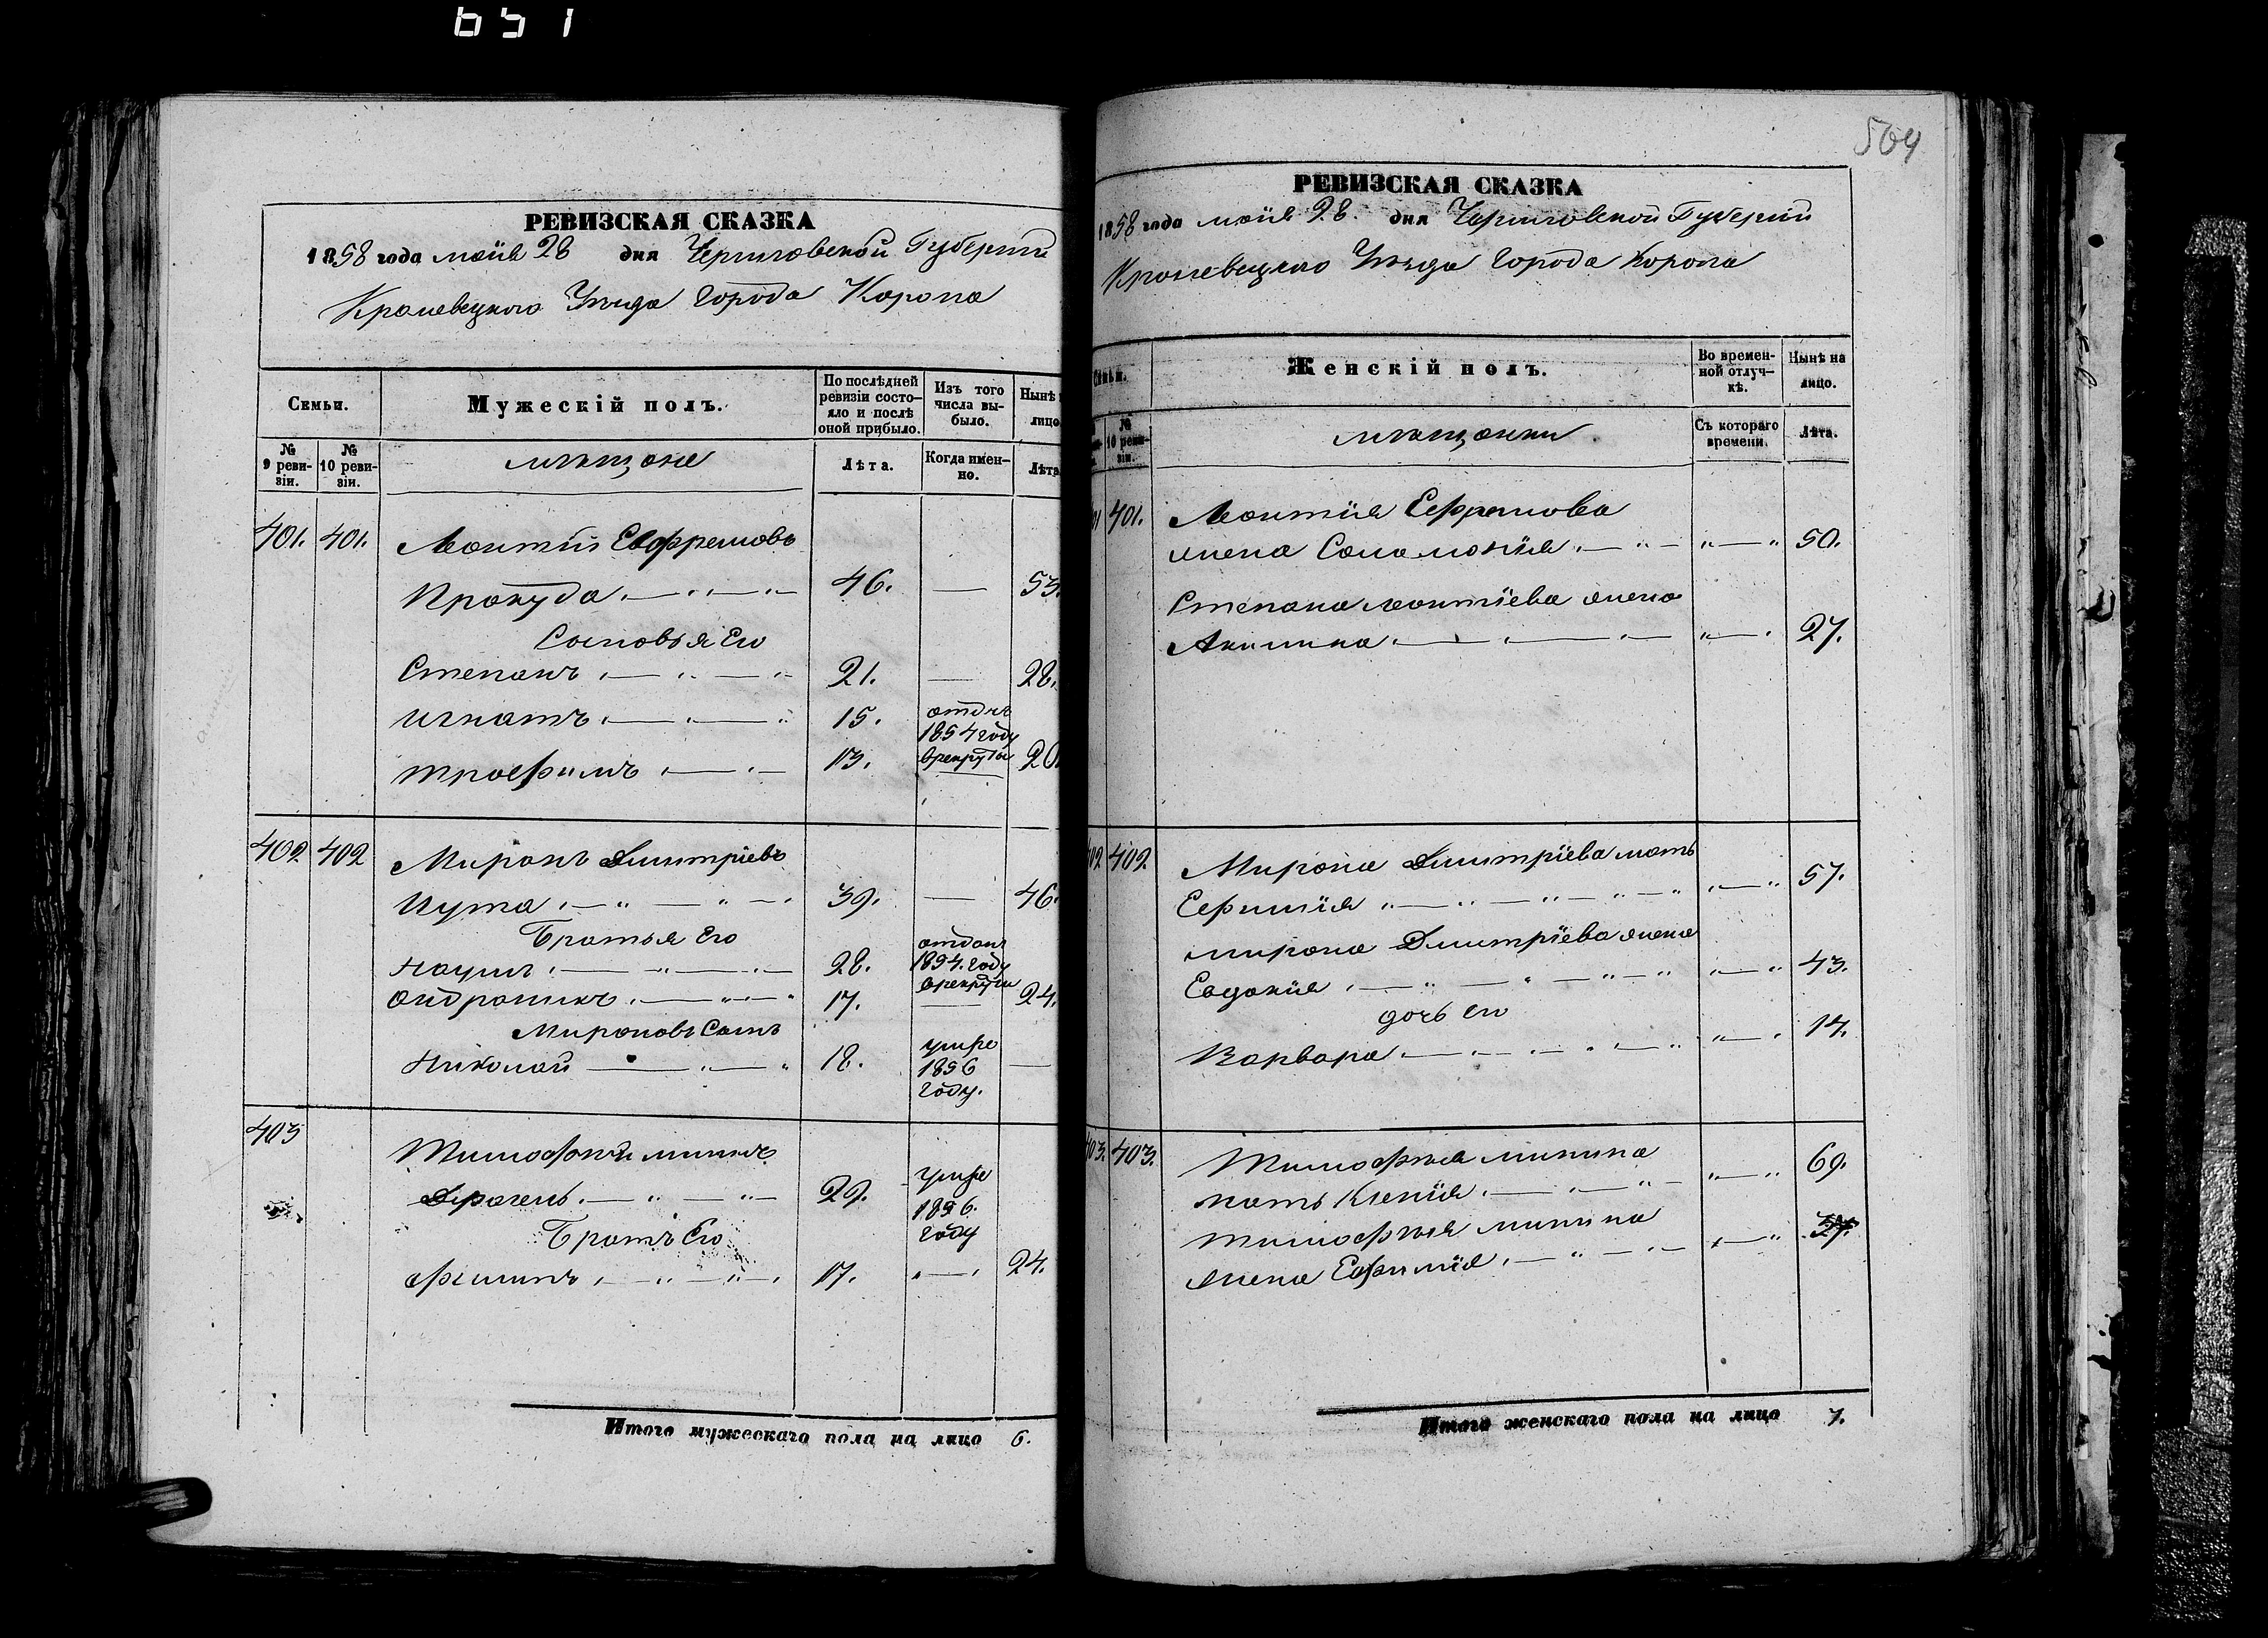 651
РЕВИЗСКАЯ СКАЗКА
1858 года маія 28 дня Черниговской Губерніи
Кролевецкого Уѣзда Города Коропа
Семьи.
Мужескій полъ.
По послѣдней ревизіи состояло и послѣ оной прибыло.
Изъ того числа выбыло.
Нынѣ
лицо
№ 9 ревизіи.
№ 10 ревизіи.
мѣщане
Лѣта.
Когда именно.
Лѣта
401. 401. Леонтій Евфремовъ
Прокуда 46. — 53.
Сыновья Его
Степанъ 21. — 28.
Игнатъ 15. отднъ 1854 году Врекруты
Трофимъ 13. — 20
402 402 Миронъ Дмитріевъ
Шута 39. — 46.
Братья Его
Наумъ 28. отданъ 1854. году Врекруты
Андроникъ 17. — 24.
Мироновъ Сынъ
Николай 18. умре 1856 году. —
403 Тимофѣй Мининъ
29. умре 1856. году
Братъ Его
Филипъ 17. — 24.
Итого мужескаго пола на лицо 6.
504
РЕВИЗСКАЯ СКАЗКА
1858 года маія 28. дня Черниговской Губерніи
Кролевецкаго Уѣзда Города Коропа
Женскій полъ.
Во временной отлучкѣ.
Нынѣ на лицо.
№ 10 ревизіи.
мѣщанки.
Съ котораго времени.
Лѣта.
401. Леонтія Ефремова
жена Соломонія 50.
Степана Леонтіева жена
Акилина 27.
402 402. Мирона Дмитріева мать
Ефимія 57.
Мирона Дмитріева жена
Евдокія 43.
дочь его
Варвара 14.
403. 403. Тимофѣя Минина
мать Ксенія 69.
Тимофѣя Минина
жена Евфимія 37.
Итого женскаго пола на лицо 7.